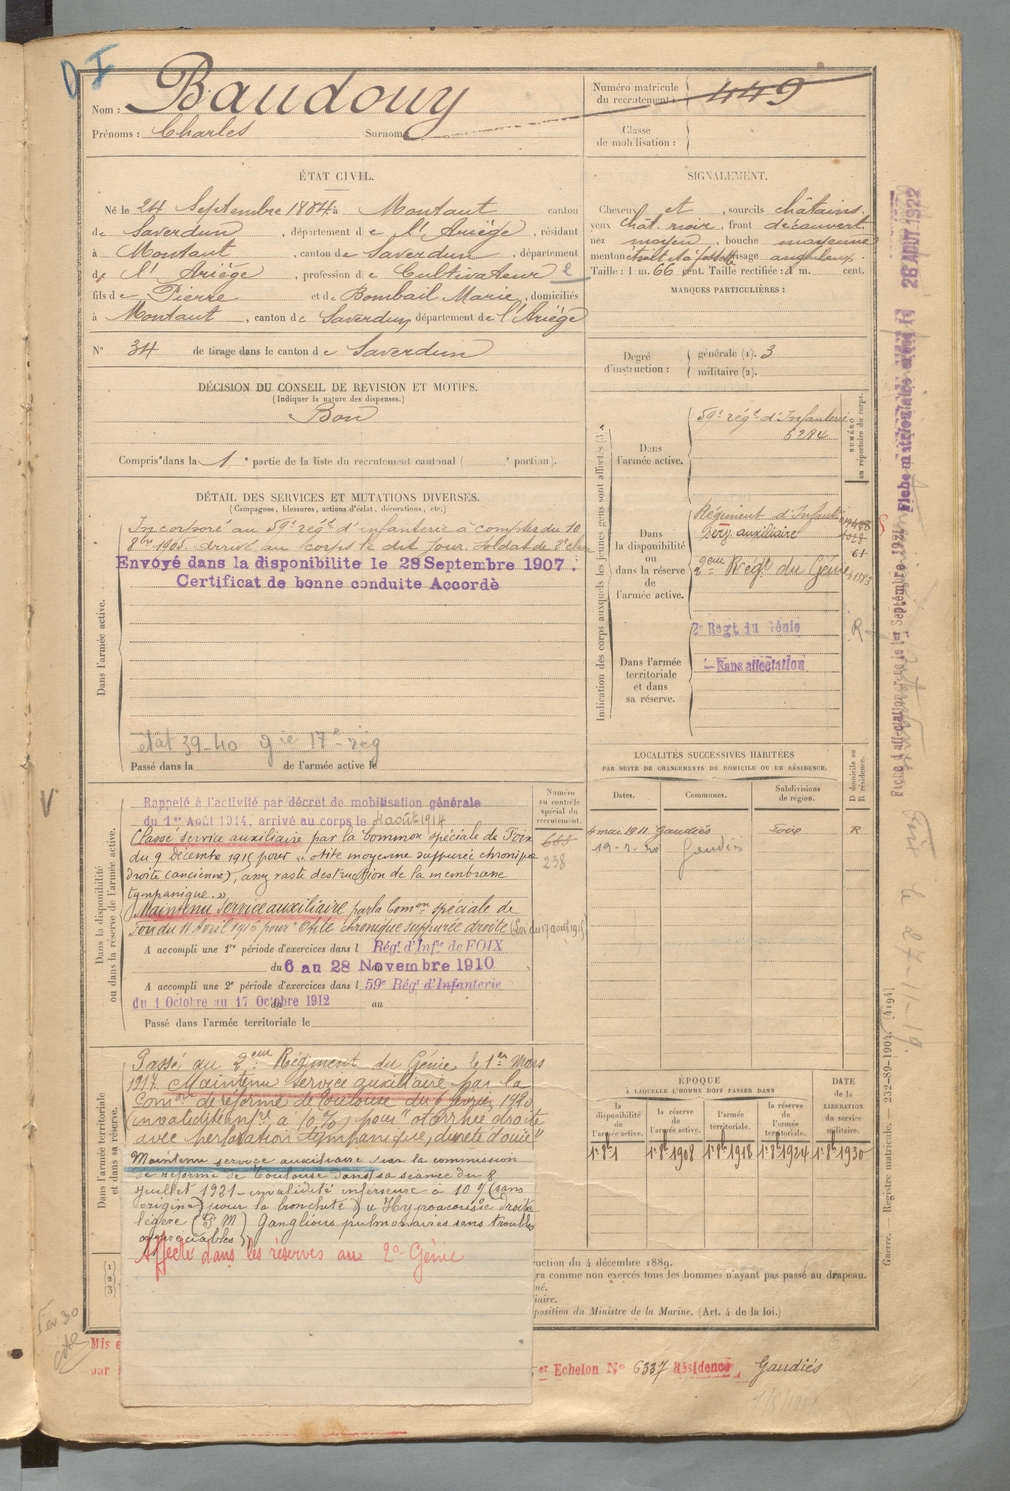 Nom : Baudouy
Prénoms : Charles Surnoms
Numéro matricule du recrutement : 449
Classe de mobilisation :
ÉTAT CIVIL.
Né le 24 Septembre 1884 à Montaut canton
de Saverdun, département de l'Ariège, résidant
à Montaut, canton de Saverdun, département
de l'Ariège, profession de Cultivateur 2
fils de Pierre et de Bombail Marie, domiciliés
à Montaut, canton de Saverdun, département de l'Ariège
N° 34 de tirage dans le canton de Saverdun
SIGNALEMENT.
Cheveux et, sourcils châtains.
yeux chât. noir, front découvert
nez moyen, bouche moyenne
menton, visage anguleux.
Taille : 1 m. 66 cent. Taille rectifiée : 1 m. cent.
MARQUES PARTICULIÈRES :
Degré d'instruction : générale (1). 3
militaire (2).
DÉCISION DU CONSEIL DE REVISION ET MOTIFS.
(Indiquer la nature des dispenses.)
Bon
Compris dans la 1e partie de la liste du recrutement cantonal ( portion).
DÉTAIL DES SERVICES ET MUTATIONS DIVERSES.
(Campagnes, blessures, actions d'éclat, décorations, etc.)
Dans l'armée active.
Incorporé au 59e régt d'infanterie à compter du 10
8bre 1905. arrivé au corps le dit jour. Soldat de 2e classe
Envoyé dans la disponibilite le 28 Septembre 1907.
Certificat de bonne conduite Accordè
état 39-40 gie 17e rég
Passé dans la de l'armée active le
Indication des corps auxquels les jeunes gens sont affectés (3).
NUMÉRO au répertoire du corps.
Dans l'armée active.
59e régt d'Infanterie
6284
Dans la disponibilité ou dans la réserve de l'armée active.
Régiment d'Infanterie
Serv. auxiliaire
2eme Régt du Génie
Dans l'armée territoriale et dans sa réserve.
2e Regt du Génie
Sans affectation
R
Dans la disponibilité ou dans la réserve de l'armée active.
Rappelé à l'activité par décret de mobilisation générale
du 1er Août 1914, arrivé au corps le 4 août 1914
Classé service auxiliaire par la Common spéciale de Foix
du 9 Décembre 1915 pour "otite moyenne suppurée chronique
droite (ancienne), assez vaste destruction de la membrane
tympanique."
Maintenu Service auxiliaire par la Comon spéciale de
Foix du 11 Avril 1916 pour "Otite chronique suppurée droite (Loi du 17 août 1915)
A accompli une 1re période d'exercices dans l Régt d'Infie de FOIX
du 6 au 28 Novembre 1910
A accompli une 2e période d'exercices dans l 59e Régt d'Infanterie
du 1 Octobre au 17 Octobre 1912 au
Passé dans l'armée territoriale le
Numéro au contrôle spécial du recrutement.
688
238
LOCALITÉS SUCCESSIVES HABITÉES
PAR SUITE DE CHANGEMENTS DE DOMICILE OU DE RÉSIDENCE.
Dates. Communes. Subdivisions de région. D domicile ou R résidence.
4 mai 1911 Gaudiès Foix R
19-2-20 Gaudiès
ÉPOQUE
À LAQUELLE L'HOMME DOIT PASSER DANS
la disponibilité de l'armée active.
la réserve de l'armée active.
l'armée territoriale.
la réserve de l'armée territoriale.
DATE de la LIBÉRATION du service militaire.
1er 8bre 1
1er 8bre 1908
1er 8bre 1918
1er 8bre 1924
1er 8bre 1930
Dans l'armée territoriale et dans sa réserve.
Passé au 2eme Régiment du Génie le 1er Mars
1917. Maintenu Service auxiliaire par la
Comon de réforme de Toulouse du 6 février 1920
(invalidité infre à 10 %) pour "otorrhée droite
avec perforation tympanique, dureté d'ouie"
Maintenu service auxiliaire par la commission
de réforme de Toulouse dans sa séance du 8
juillet 1921 - invalidité inférieure à 10 % (sans
origine) pour la bronchite) u Hypoacousie droite
légère (P M) Ganglions pulmonaires sans troubles
appréciables)
Affecté dans les réserves au 2e Génie
(1)
(2)
(3)
uction du 4 décembre 1889.
ra comme non exercés tous les hommes n'ayant pas passé au drapeau.
né.
iaire.
position du Ministre de la Marine. (Art. 4 de la loi.)
Mis e
par
er Echelon N° 6337 Résidence Gaudiès
Guerre. — Registre matricule. — 232-89-1904. [4194]
28 AOUT 1922